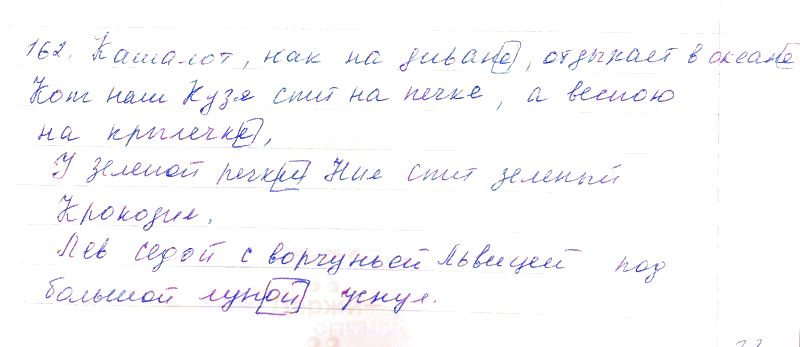 162. Кашалот, как на диване, отдыхает в океане
Кот наш Кузя спит на печке, а весною
на крылечке,
У зеленой речки Нил спит зеленый
Крокодил.
Лев седой с ворчуньей Львицей под
большой луной уснул.